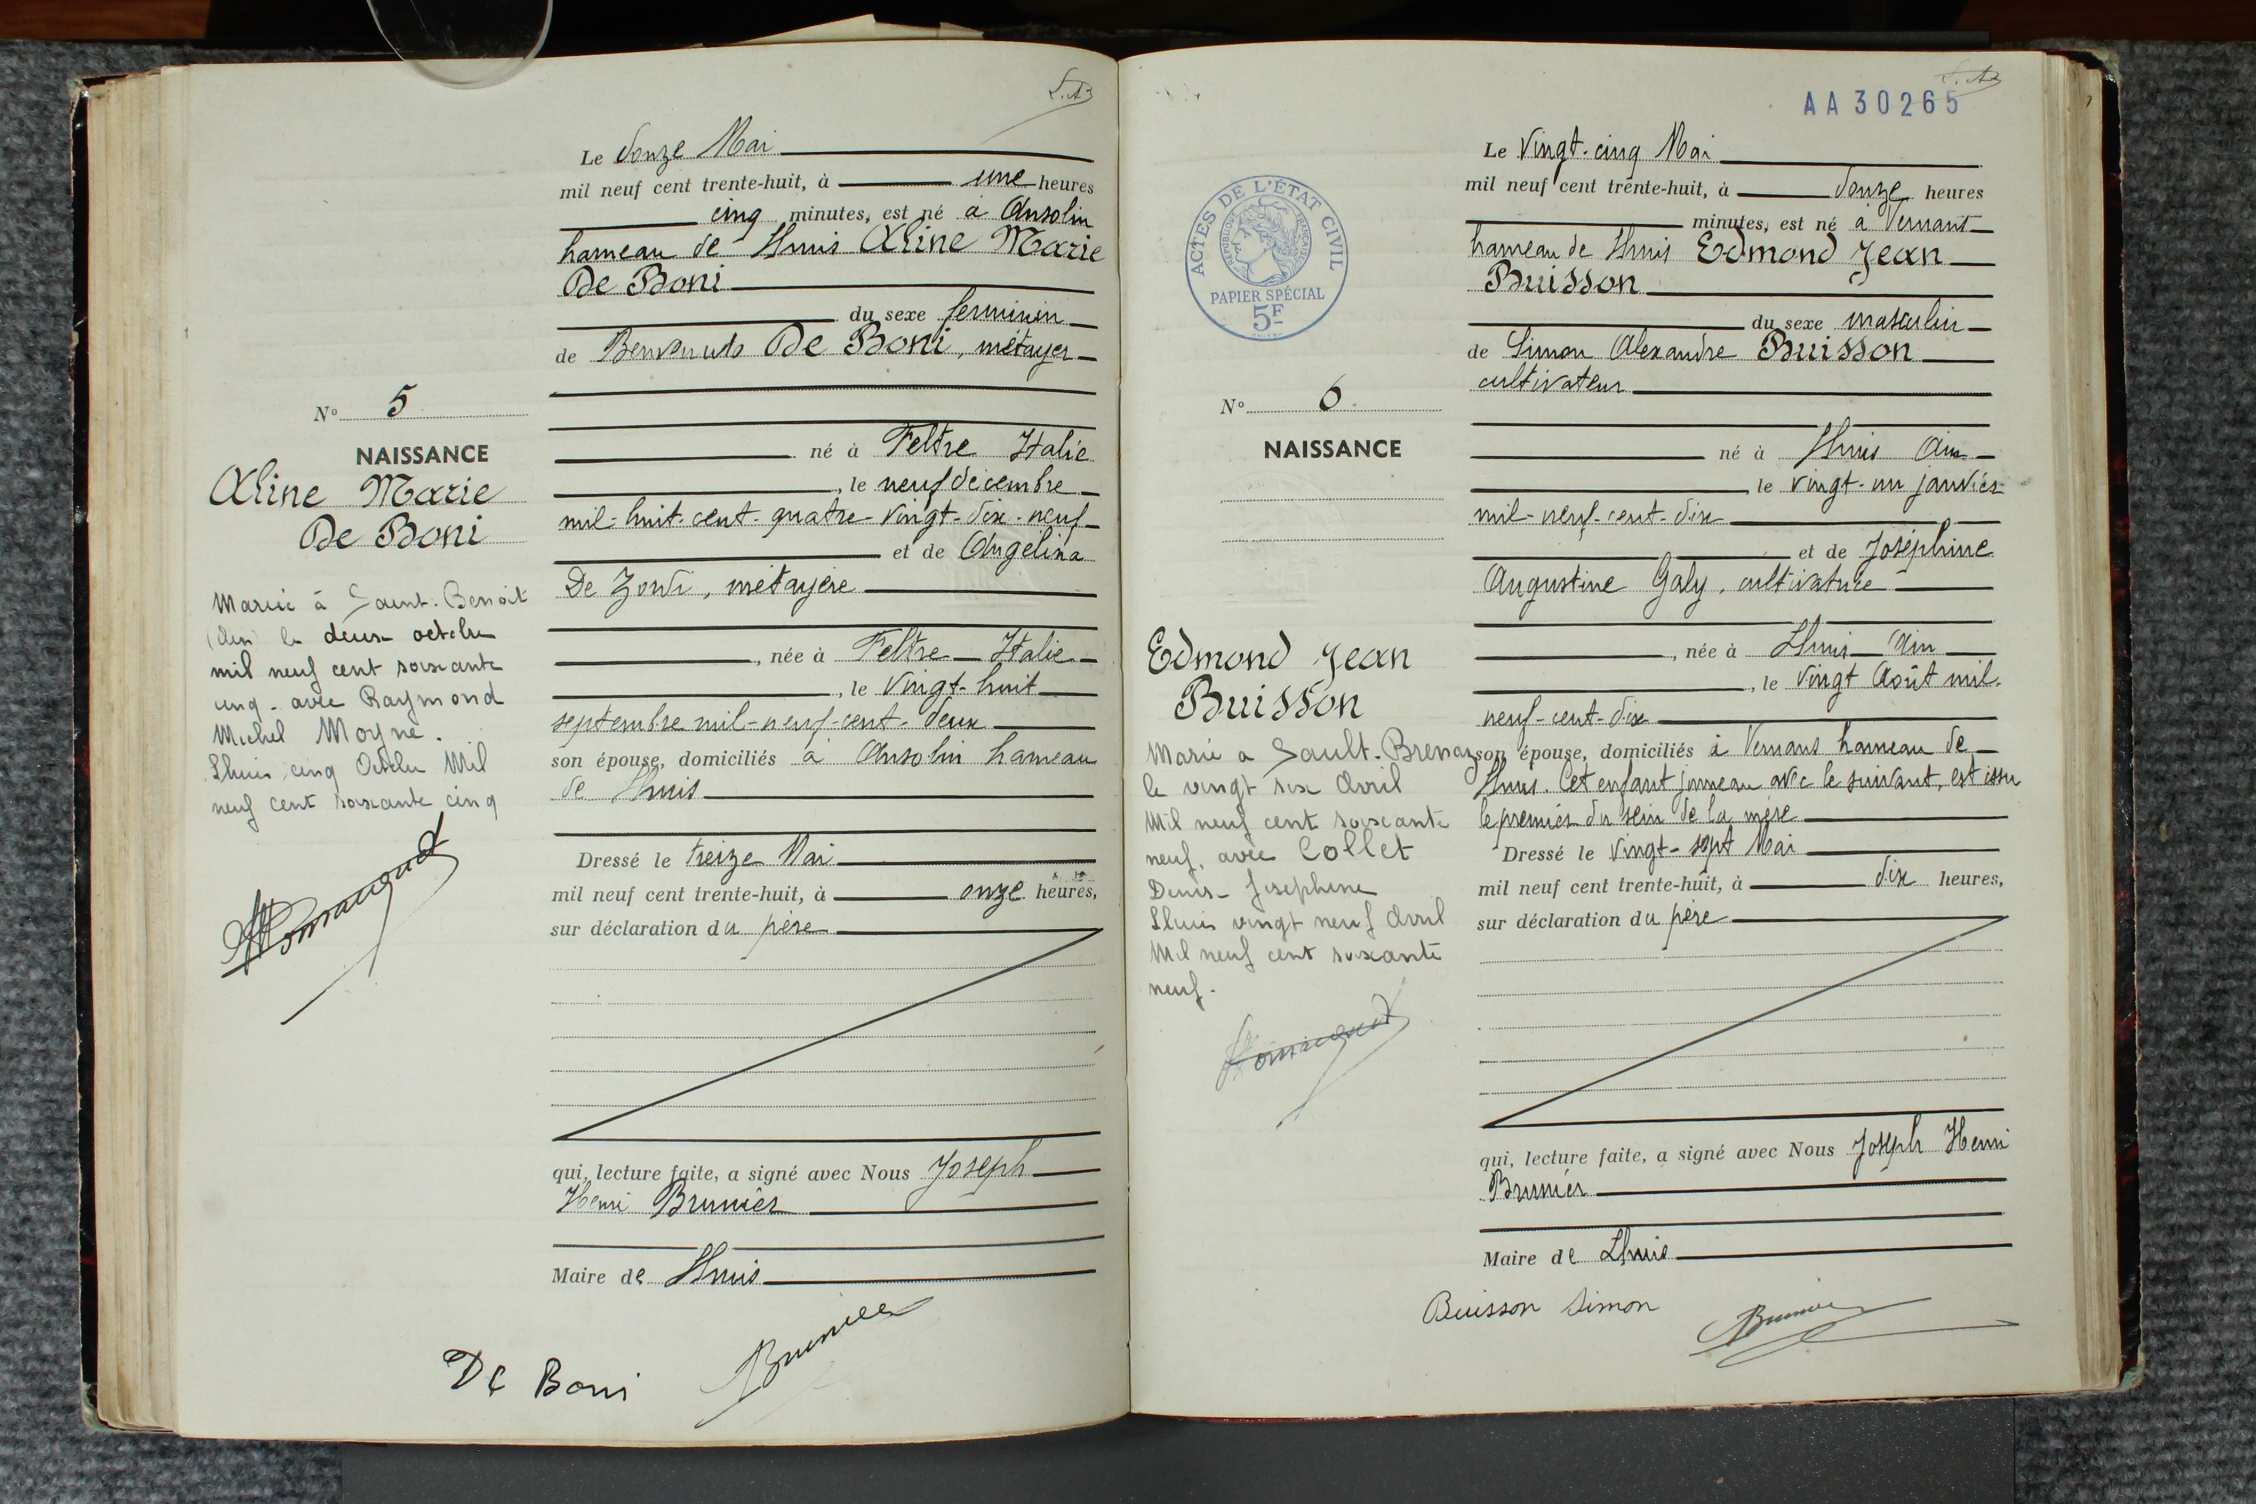 Le douze Mai
mil neuf cent trente-huit, à une heures
cinq minutes, est né à Ansolin
hameau de Lhuis Aline Marie
De Boni
du sexe féminin
de Benvenuto De Boni, métayer
né à Feltre Italie
, le neuf décembre
mil-huit-cent-quatre-vingt-dix-neuf
et de Angelina
De Zordi, métayère
, née à Feltre Italie
, le vingt-huit
septembre mil-neuf-cent-deux
son épouse, domiciliés à Ansolin hameau
de Lhuis
Dressé le treize Mai
mil neuf cent trente-huit, à onze heures,
sur déclaration du père
qui, lecture faite, a signé avec Nous Joseph
Henri Brunier
Maire de Lhuis
De Boni Brunier
No 5
NAISSANCE
Aline Marie
De Boni
Mariée à Saint-Benoit
(Ain) le deux octobre
mil neuf cent soixante
cinq - avec Raymond
Michel Moyne.
Lhuis cinq Octobre Mil
neuf cent soixante cinq
AA30265
Le vingt-cinq Mai
mil neuf cent trente-huit, à douze heures
minutes, est né à Vernans
hameau de Lhuis Edmond Jean
Buisson
du sexe masculin
de Simon Alexandre Buisson
cultivateur
né à Lhuis Ain
, le vingt-un janvier
mil-neuf-cent-dix
et de Joséphine
Augustine Galy, cultivatrice
, née à Lhuis Ain
, le vingt Août mil-
neuf-cent-dix
son épouse, domiciliés à Vernans hameau de
Lhuis. Cet enfant jumeau avec le suivant, est issu
le premier du sein de la mère
Dressé le vingt-sept Mai
mil neuf cent trente-huit, à dix heures,
sur déclaration du père
qui, lecture faite, a signé avec Nous Joseph Henri
Brunier
Maire de Lhuis
Buisson Simon Brunier
ACTES DE L'ÉTAT CIVIL
RÉPUBLIQUE FRANÇAISE
PAPIER SPÉCIAL
5F
No 6
NAISSANCE
Edmond Jean
Buisson
Marié a Sault-Brenaz
le vingt six Avril
Mil neuf cent soixante
neuf, avec Collet
Denis- Josephine
Lhuis vingt neuf Avril
Mil neuf cent soixante
neuf.